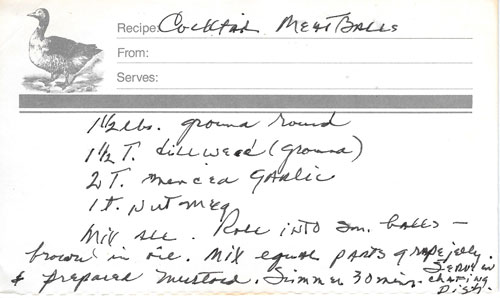 Recipe: Cocktail Meat Balls
From:
Serves:
1 1/2 lbs. ground round
1 1/2 T. dillweed (ground)
2 T. minced garlic
1 t. nutmeg
Mix all. Roll into sm. balls –
brown in oil. Mix equal parts grape jelly.
& prepared mustard. Simmer 30 mins. Serve in
chafing
Dish